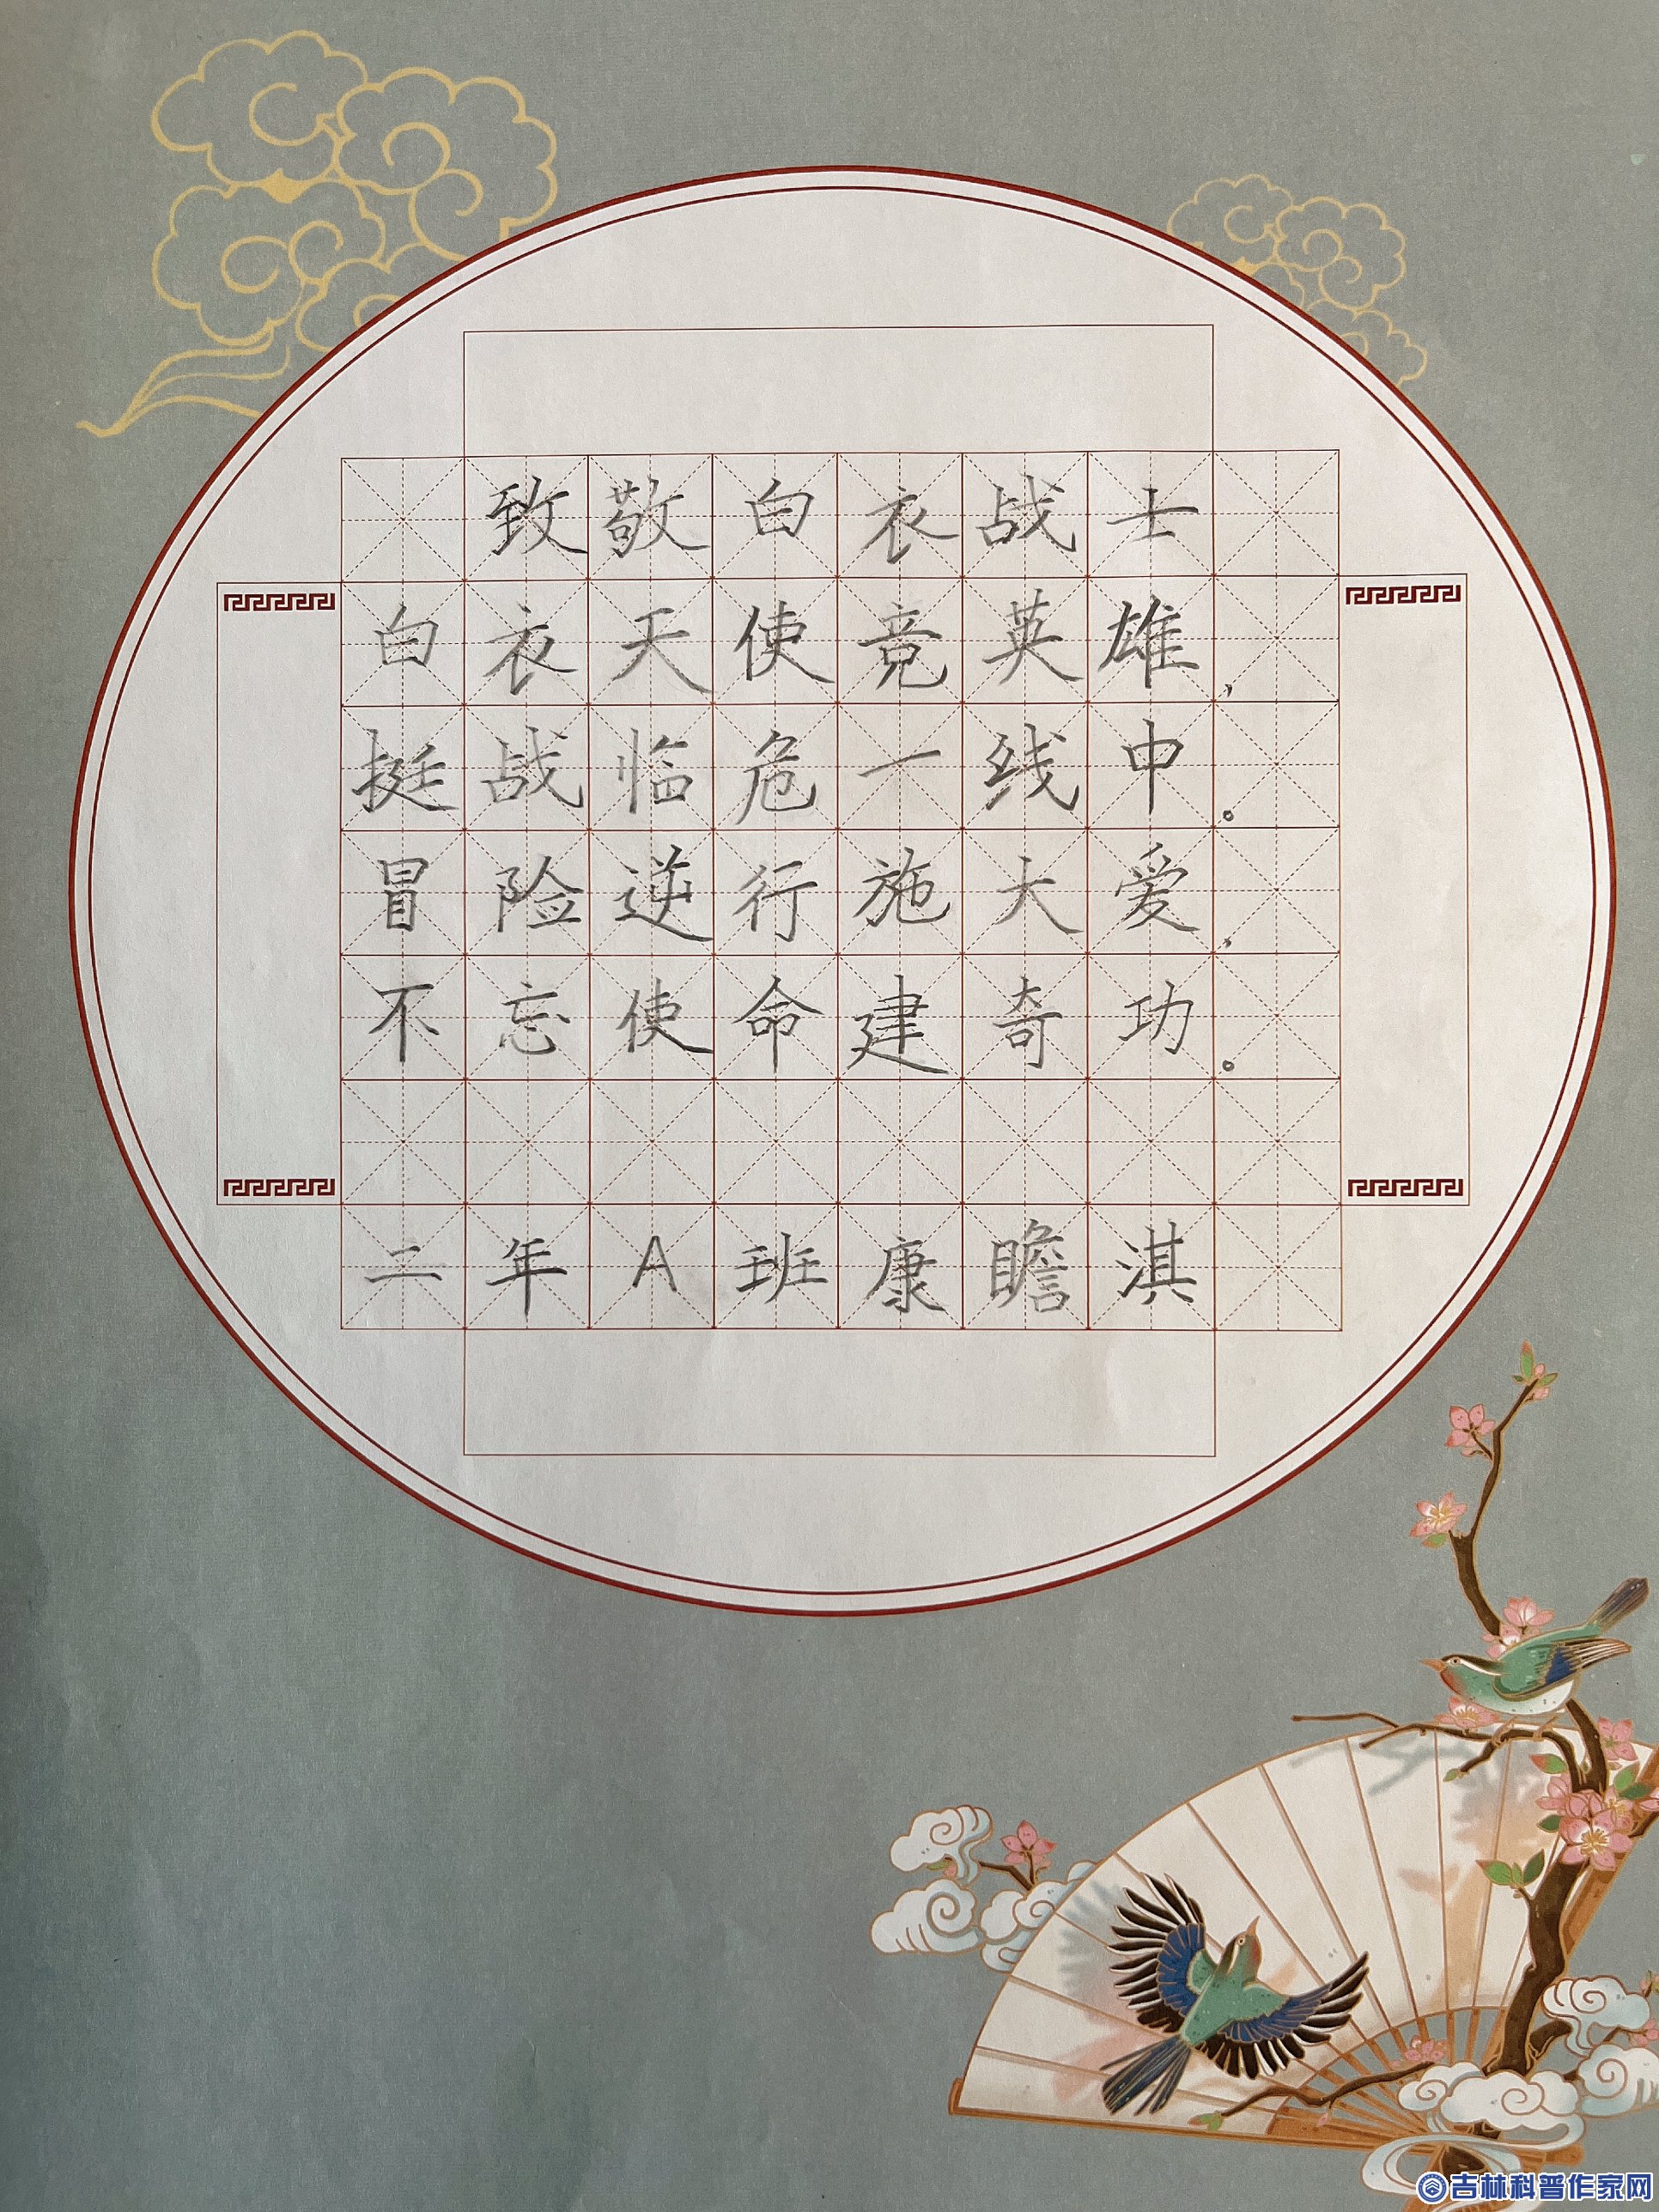 致敬白衣战士
白衣天使竞英雄,
挺战临危一线中。
冒险逆行施大爱,
不忘使命建奇功。
二年A班康瞻淇
吉林科普作家网